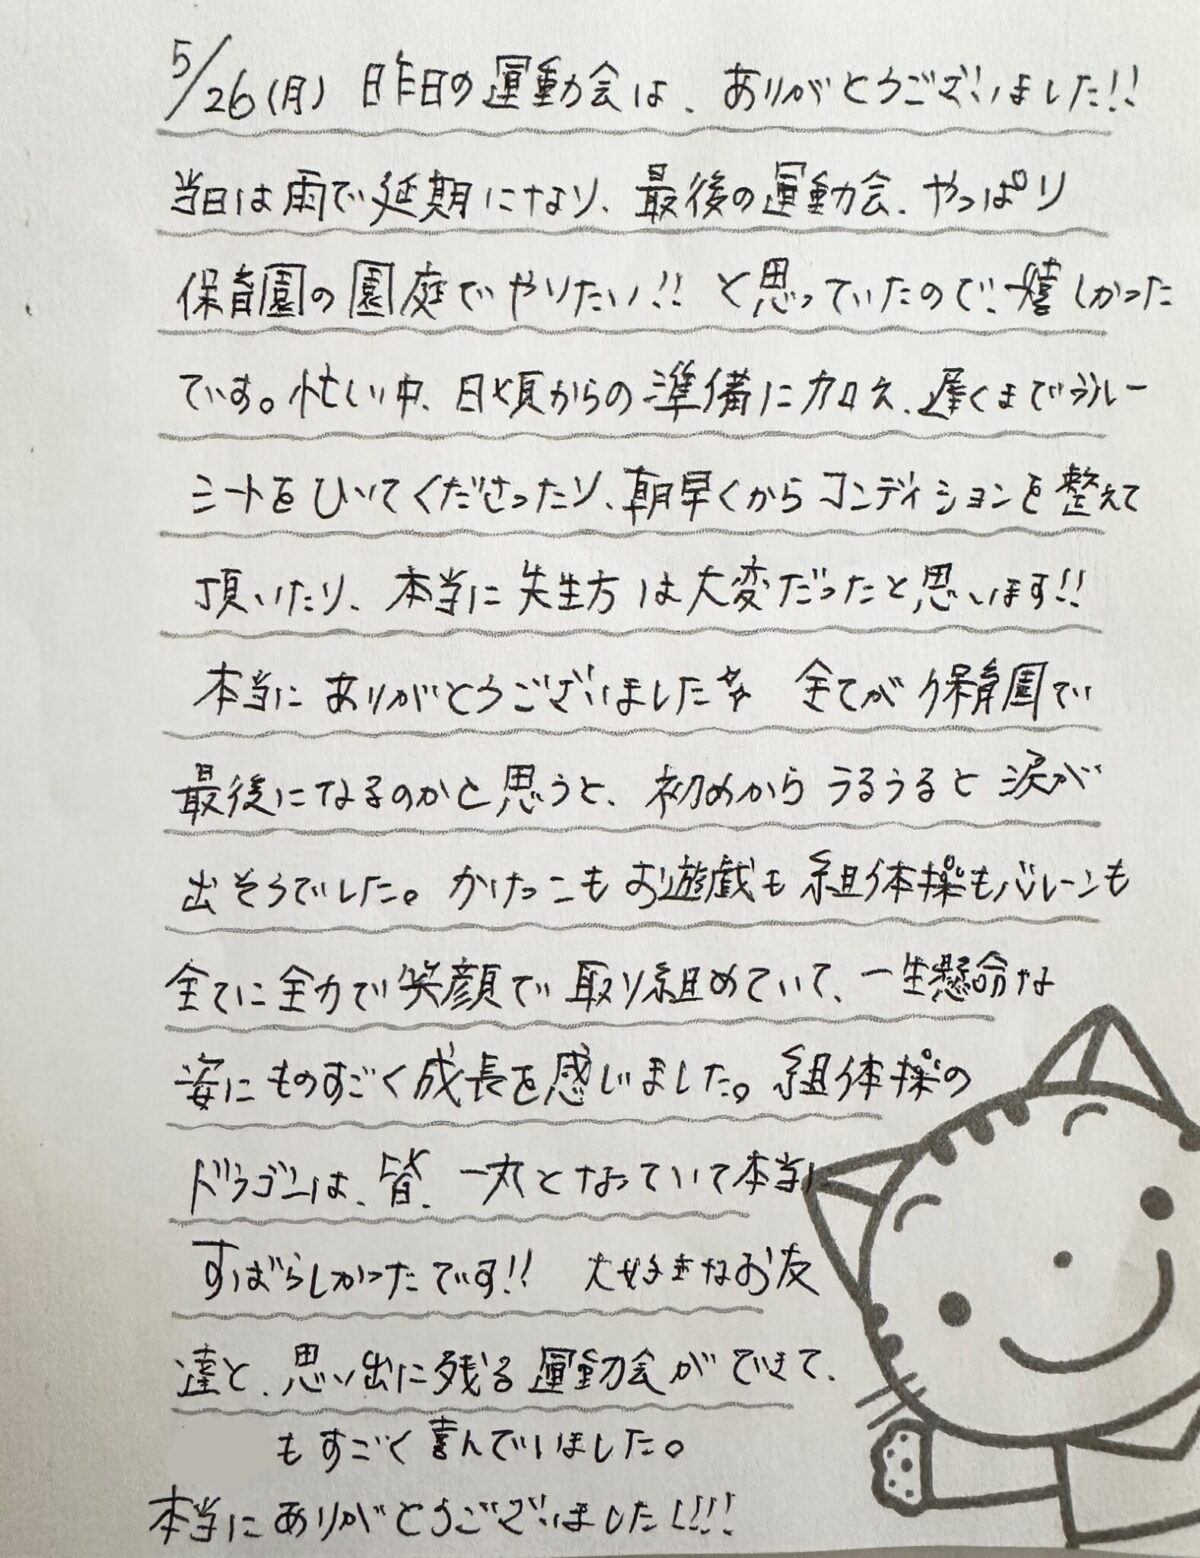 5/26(月) 昨日の運動会は、ありがとうございました!!
当日は雨で延期になり、最後の運動会、やっぱり
保育園の園庭でやりたい!! と思っていたので、嬉しかった
です。忙しい中、日頃からの準備に加え、遅くまでブルー
シートをひいてくださったり、朝早くからコンディションを整えて
頂いたり、本当に先生方は大変だったと思います!!
本当にありがとうございました☆ 全てが保育園で
最後になるのかと思うと、初めからうるうると涙が
出そうでした。かけっこもお遊戯も組体操もバルーンも
全てに全力で笑顔で取り組めていて、一生懸命な
姿にものすごく成長を感じました。組体操の
ドラゴンは、皆、一丸となっていて本当に
すばらしかったです!! 大好きなお友
達と、思い出に残る運動会ができて、
もすごく喜んでいました。
本当にありがとうございました!!!